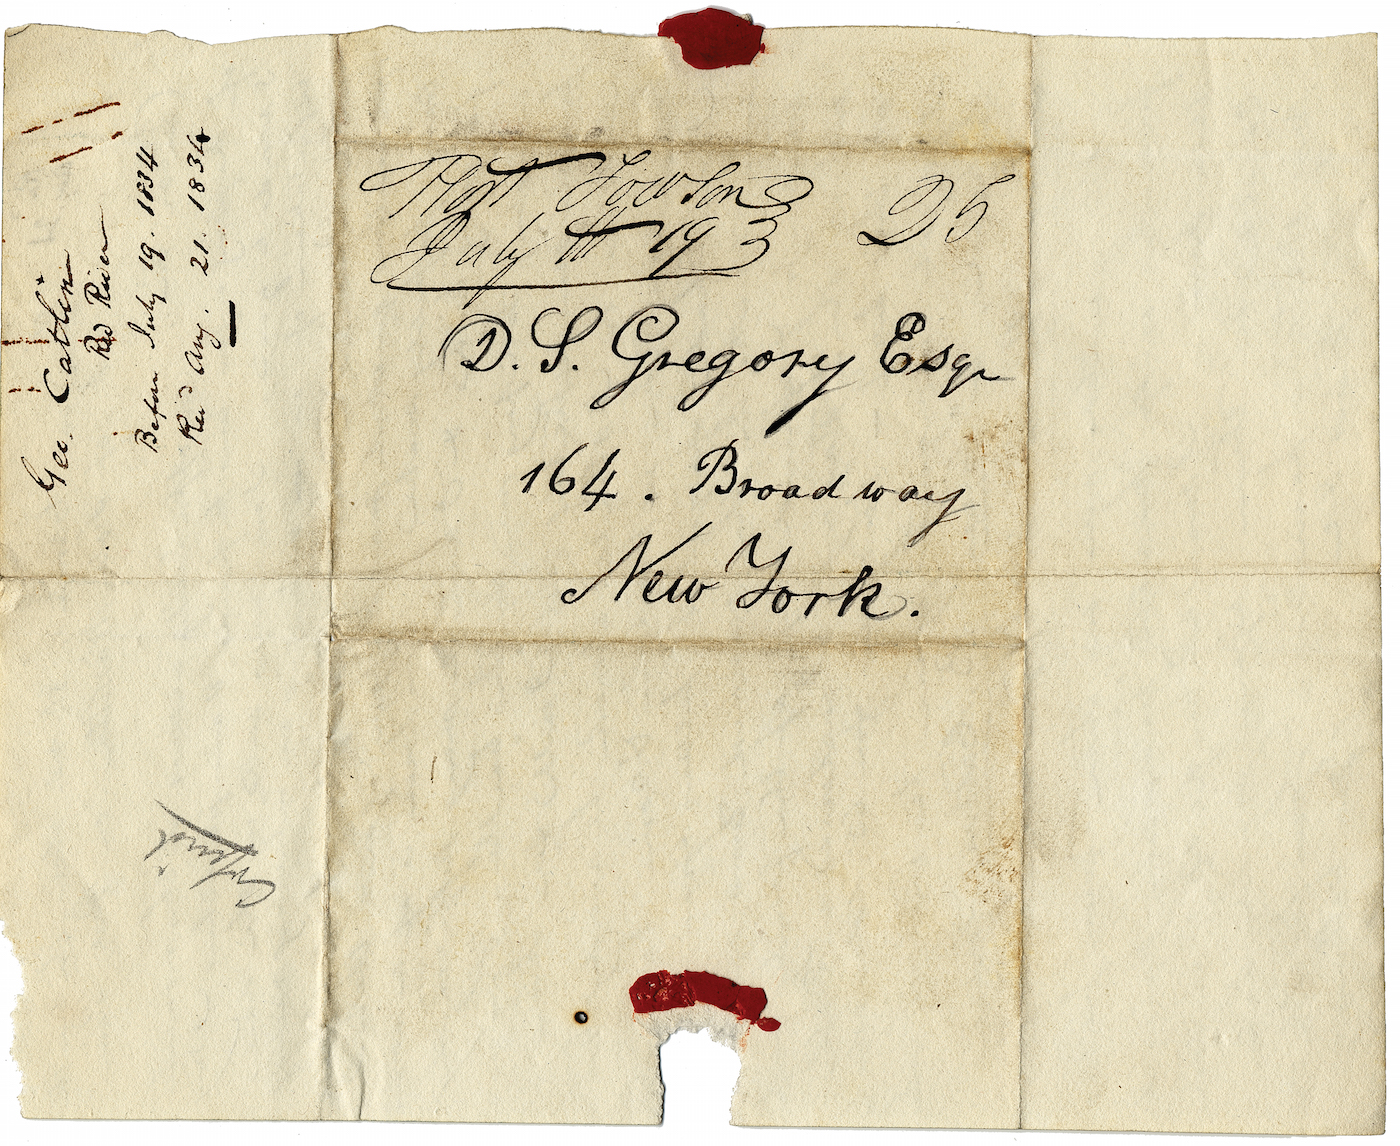 Fort Towson
July 19
25
D. S. Gregory Esqr
164. Broadway
New York.
Geo. Catlin
Red River
Before July 19. 1834
Recd Aug. 21. 1834